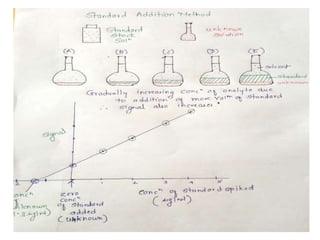 Standard Addition Method
Standard
Stock
Solⁿ
unknown
solution
(A) (B) (C) (D) (E)
solvent
standard
unknown
Gradually increasing concⁿ of analyte due
to addition of more volᵐ of standard
∴ signal also increases.
signal
concⁿ
zero
concⁿ
of standard
added
(unknown)
concⁿ of standard spiked
(µg/ml)